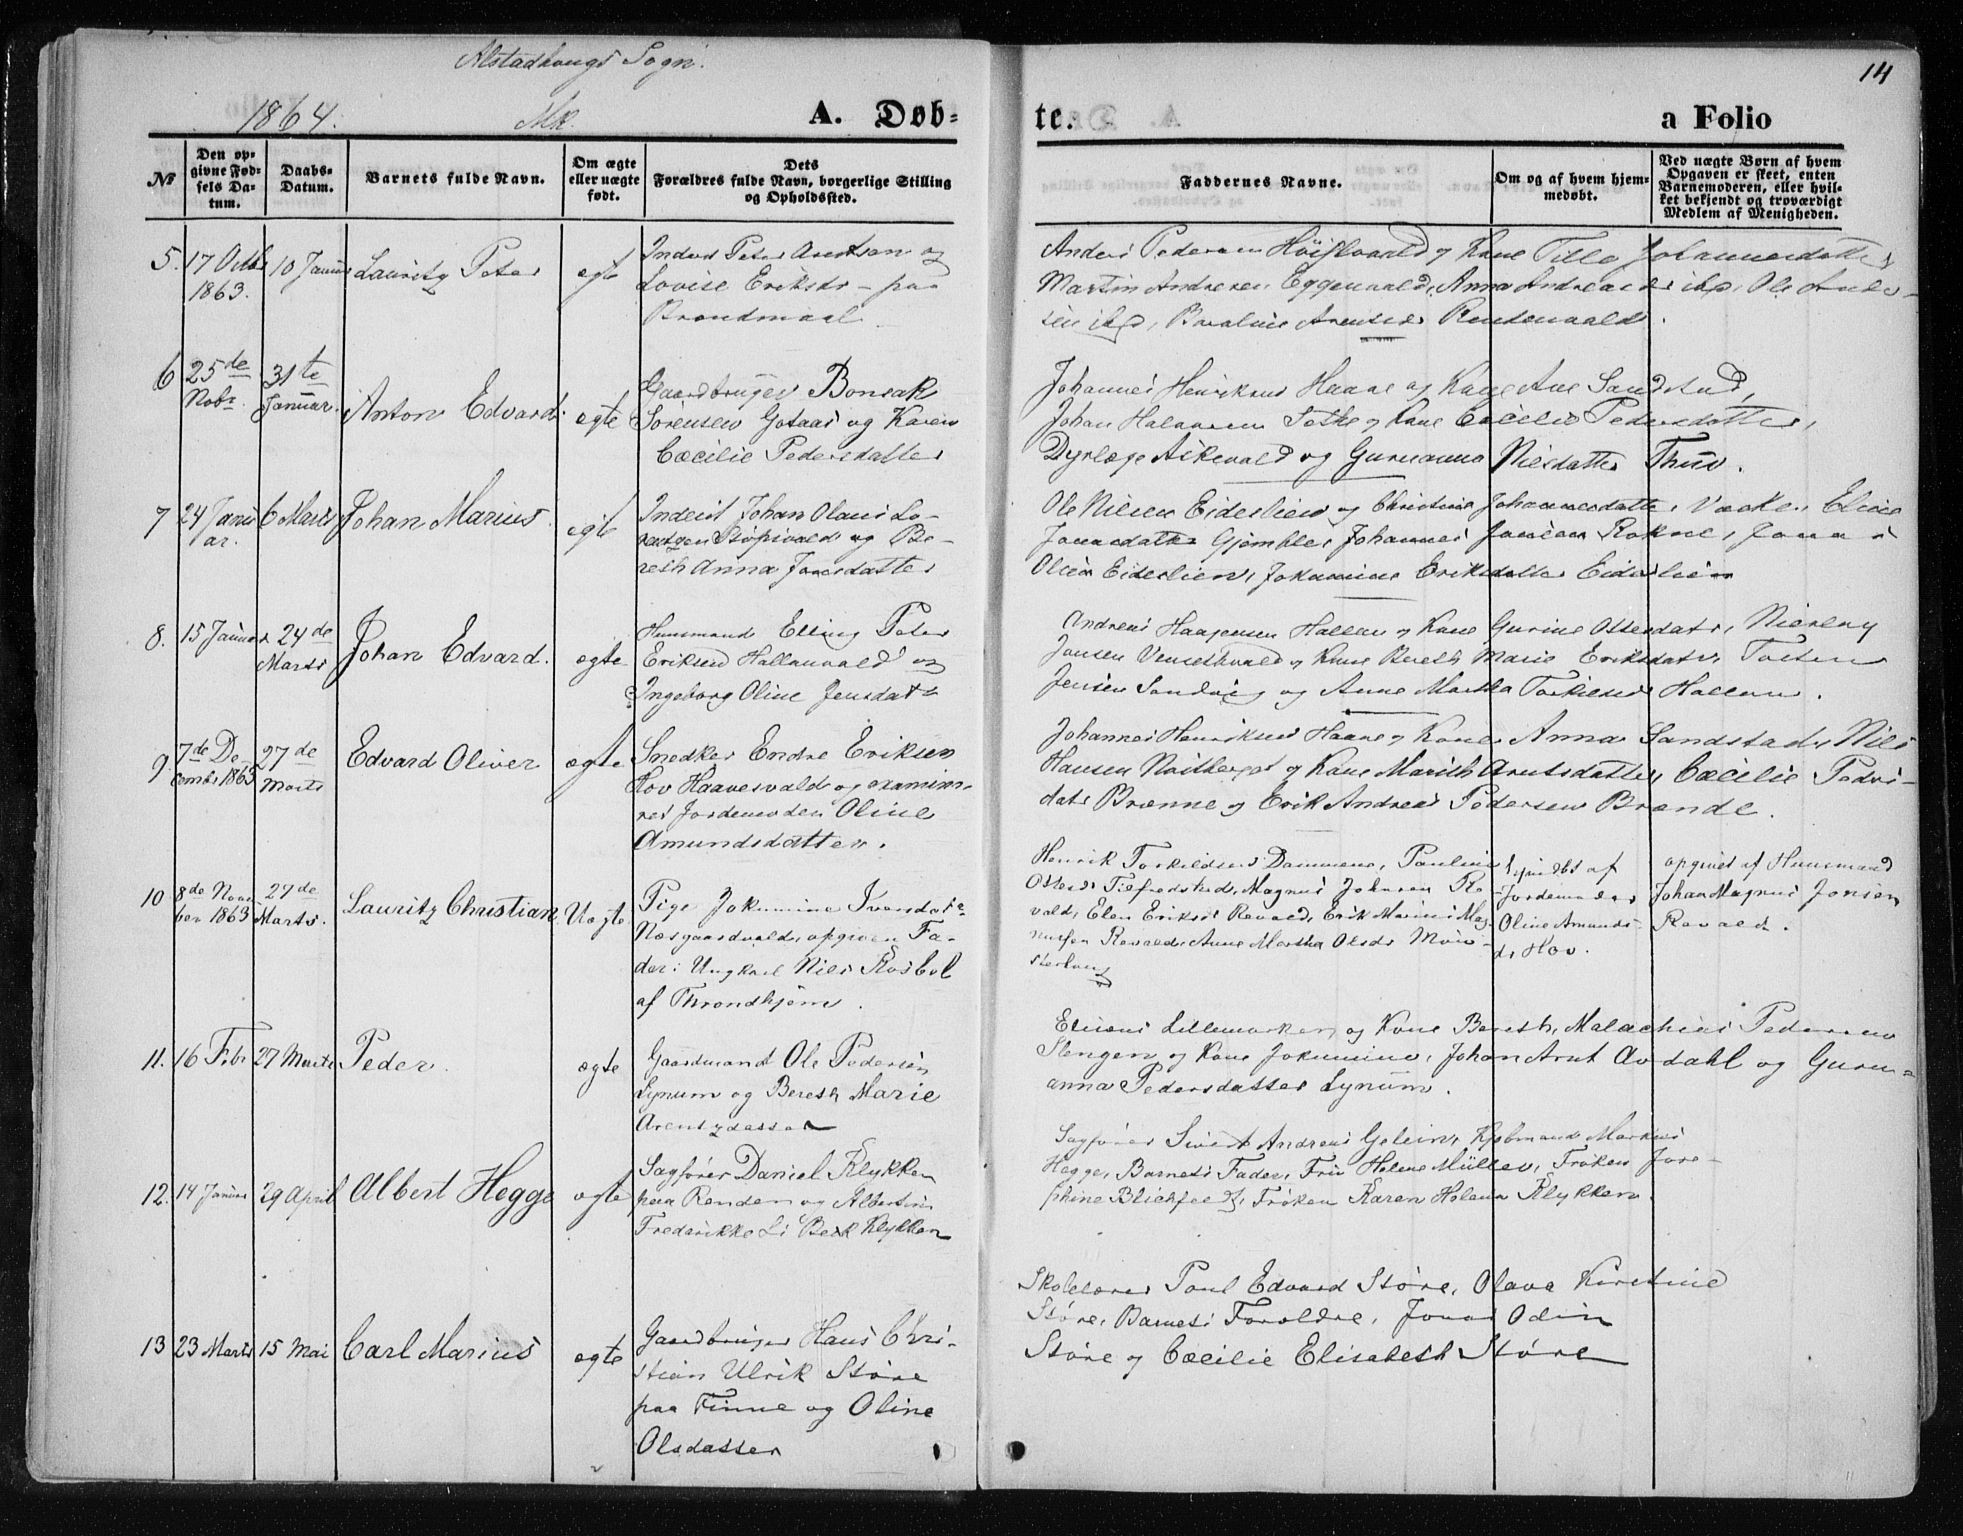 Alstadhougs Sogn.
14
1864. Mk. A. Døb= te. a Folio
№
Den op=
givne Fød=
sels Da=
tum.
Daabs=
Datum.
Barnets fulde Navn.
Om ægte
eller uægte
født.
Dets
Forældres fulde Navn, borgerlige Stilling
og Opholdssted.
Faddernes Navne.
Om og af hvem hjem=
medøbt.
Ved uægte Børn af hvem
Opgaven er skeet, enten
Barnemoderen, eller hvil=
ket bekjendt og troværdigt
Medlem af Menigheden.
5. 17 Octbr
1863.
10 Januar
Lauritz Peter
egte
Inderst Peter Arentsen og
Lovise Eriksdr paa
Brandmaal
Anders Pedersen og Kone Johannesdatter
Martin Andresen Eggenvald, Anna ibd, Ole
sen ibd,
6 25de
Nobr.
31te
Januar.
Anton Edvard.
egte
Gaardbruger Bonsak
Sørensen Gotaas og Karen
Cæcilie Pedersdatter
Johannes Henriksen Haave og Kone Ane Sandstad,
Johan og Kone Cæcilie Pedersdatter,
Dyrlæge og Guruanna Nilsdatter
7 24 Janu
ar.
6 Marts
Johan Marius.
egte
Inderst Johan Olaus Lo-
rentzen og Be-
reth Anna Jonsdatter
Ole Nilsen Eidslien og Christine Johannesdatter
Jonasdatter Gjømble, Johannes Jonsen Rokne, Jonas
Olsen Eidslien, Jokumine Eriksdatter Eidslien
8. 15 Januar
24de
Marts
Johan Edvard.
egte
Huusmand Elling Peter
Eriksen Hallanvald og
Ingeborg Oline Jensdatr
Andreas Haagensen Hallan og Kone Gurine
Jonsen og Kone Bereth Marie Eriksdatr,
Jensen Sandvig og Anne Martha Hallan.
9 7de De-
cembr 1863
27de
Marts
Edvard Oliver
egte
Snedker Endre Eriksen
Hov Haavesvald og examine-
ret Jordemoder Oline
Amundsdatter.
Johannes Henriksen Haave og Kone Anna Sandstad, Nils
Hansen og Kone Marith Arntsdatter, Cæcilie Peders-
datr Brenne og Erik Andreas Pedersen Brende.
10 8de Novem
ber 1863
27de
Marts.
Lauritz Christian
Uegte
Pige Jokumine Iversdatr
Næsgaardvald, opgiven Fa-
der: Ungkarl Nils Rosbol
af Throndhjem.
Henrik Torkildsen Dammene, Pauline
Magnus Johnsen Re-
vald, Elen Eriksdr Revald, Erik Marius Mag-
nussen Revald, Anne Martha Olsdr
af
Jordemoder
Oline Amunds-
dr Hov.
opgivet af Huusmand
Johan Magnus Jonsen
Revald.
11. 16 Febr
27 Marts
Peder.
egte
Gaardmand Ole Pedersen
Lynum og Bereth Marie
Arentzdatter
Lillemarken og Kone Bereth, Malachias Pedersen
Slengen og Kone Jokumine, Johan Arnt Avdahl og Guru-
anna Pedersdatter Lynum.
12. 14 Januar
29 April
Albert Hegge
egte
Sagfører Daniel Klykken
paa og Albertine
Fredrikke Li Beck Klykken
Sagfører Sivert Andreas Gelein, Kjøbmand Markus
Hegge, Barnets Fader, Fru Helene Müller, Frøken Jose-
phine Blichfeldt, Frøken Karen Helena Klykken.
13 23 Marts
15 Mai
Carl Marius
egte
Gaardbruger Hans Chri-
stian Ulrik Støre
paa Finne og Oline
Olsdatter
Skolelærer Paul Edvard Støre, Olava Kirstine
Støre, Barnets Forældre, Jonas Odin
Støre og Cæcilie Elisabeth Støre